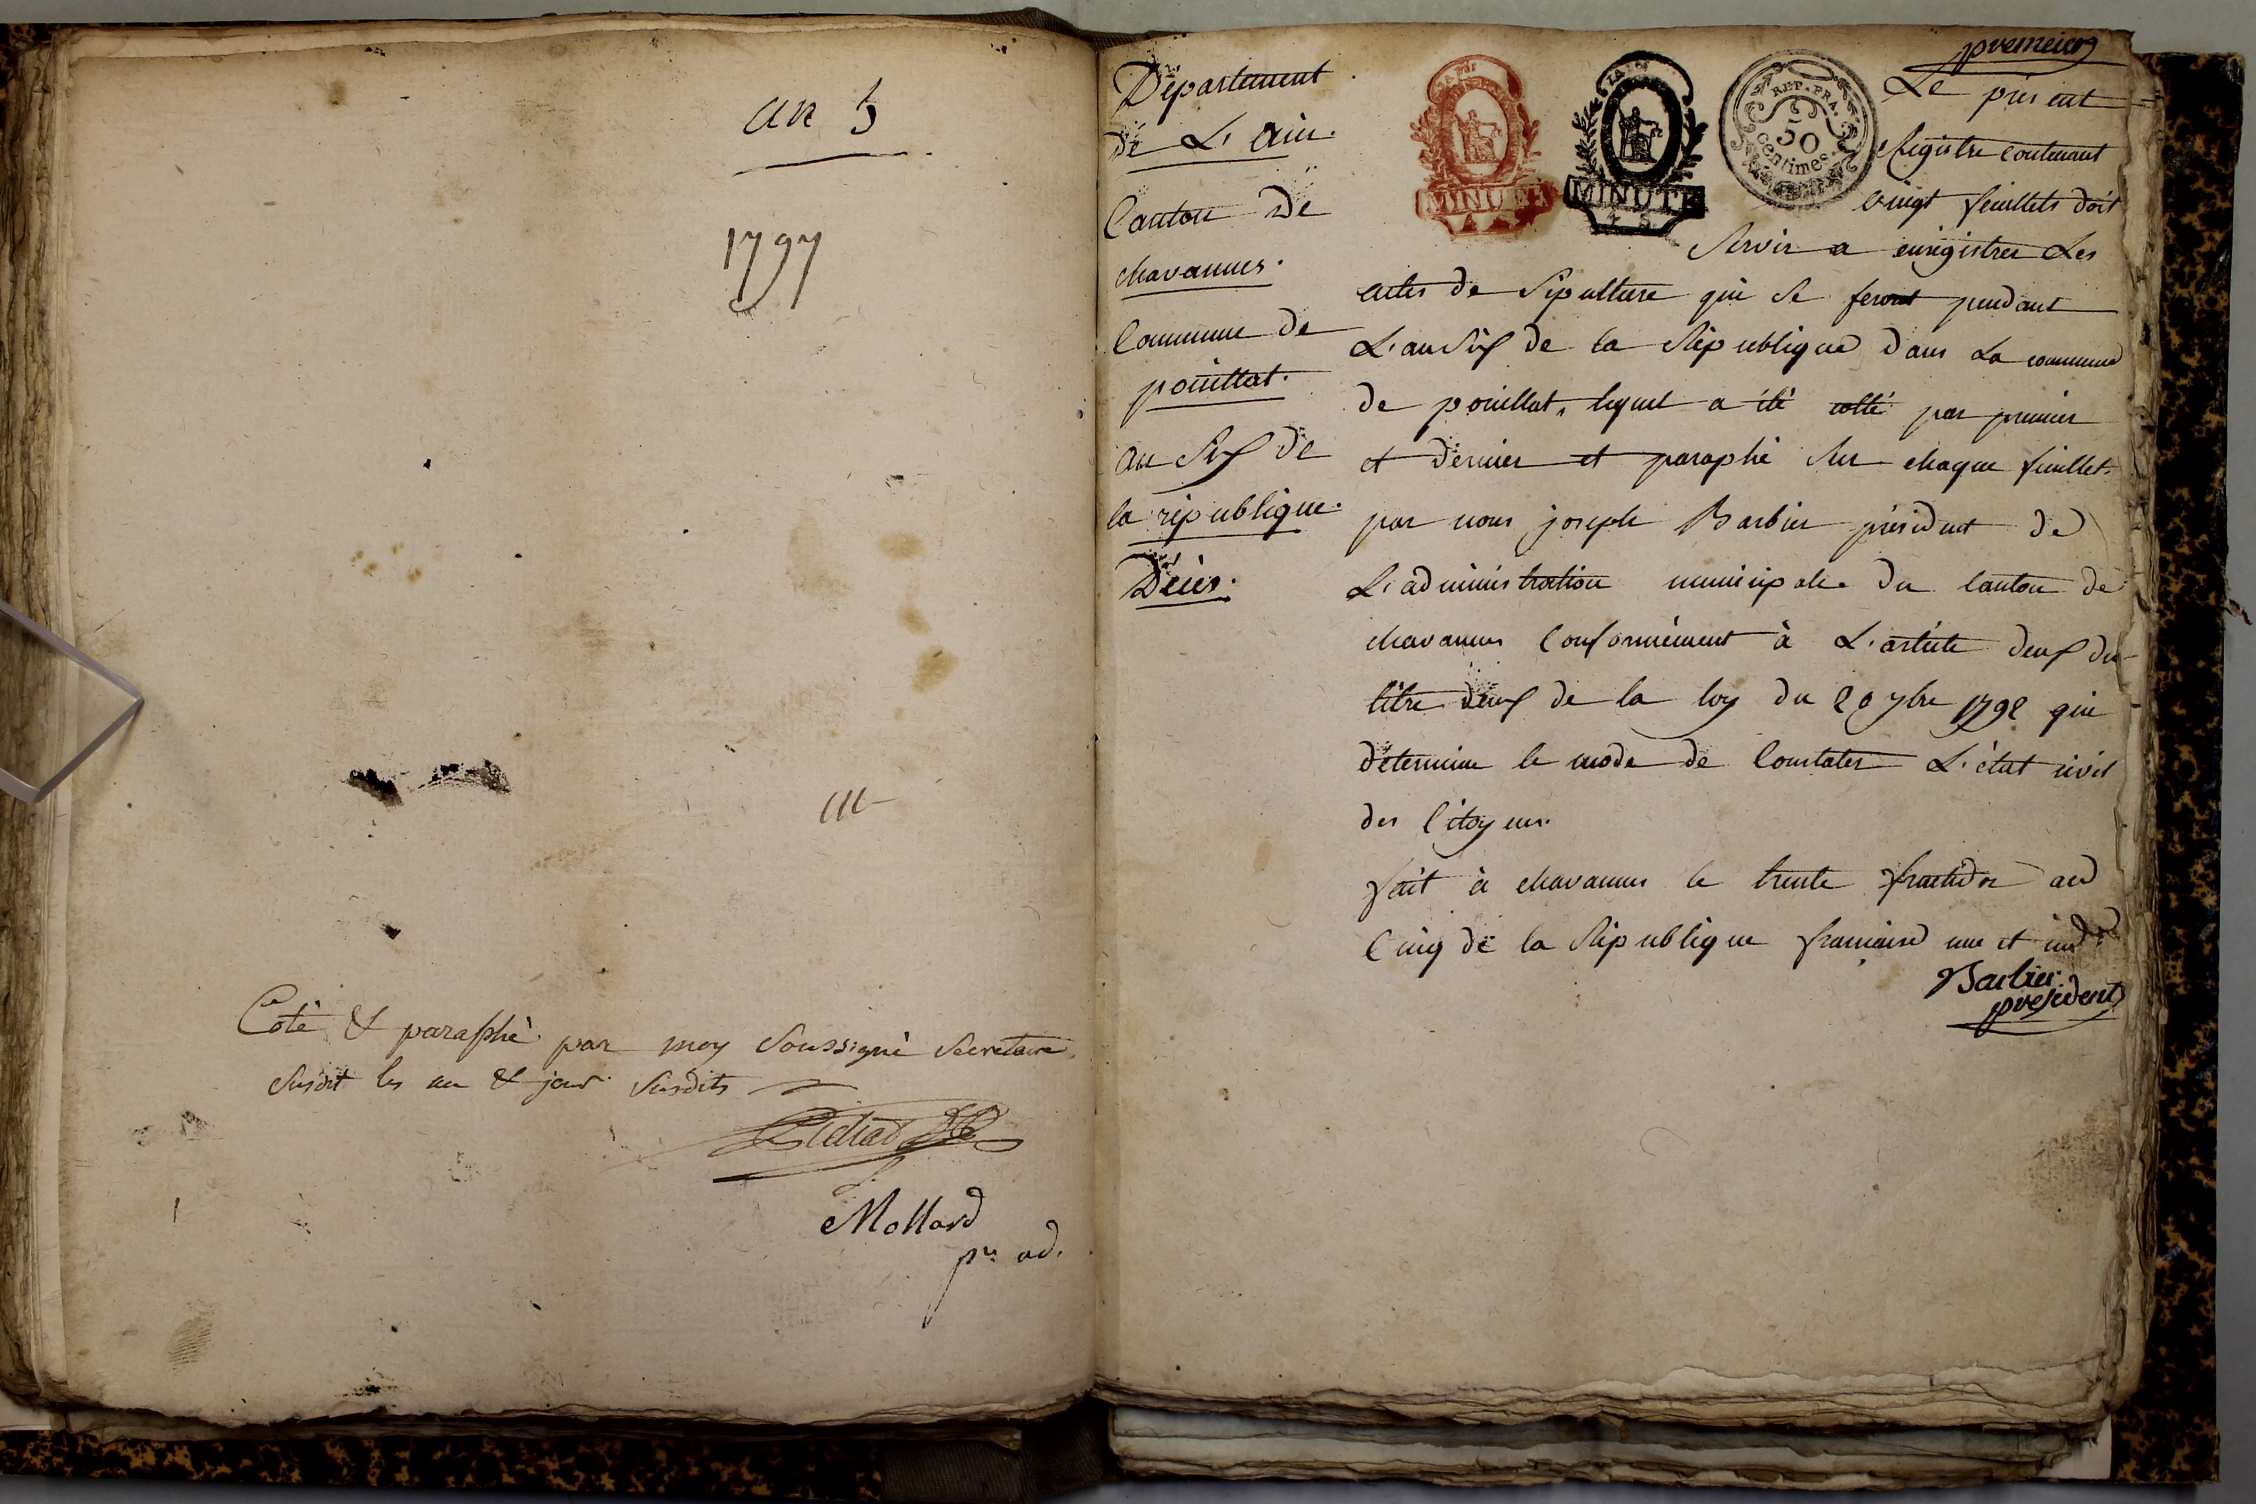 an 5
1797
Coté & paraphé par moy Soussigné Secretaire
Susdit les an & jour Susdits
Mollard
pr. ad.
Département
de L'ain.
Canton De
chavannes.
Commune de
pouillat.
an Six de
la république.
Décès.
LA LOI
MINUTE
LA LOI
MINUTE
REP. FRA.
50
Centimes.
premier
Le présent
Registre contenant
vingt feuillets doit
Servir a enrégistrer Les
actes de Sépulture qui Se feront pendant
L'an Six de la République dans La commune
de pouillat, lequel a été cotté par premier
et dernier et paraphé Sur chaque feuillet.
par nous joseph Barbier président de
L'administration municipale du Canton de
chavannes Conformément à L'article deux du
titre deux de la loy du 20 7bre 1792 qui
détermine le mode de Constater L'état civil
des Citoyens.
fait à chavannes le trente fructidor an
Cinq de la République francaise une et indle
Barbier
president